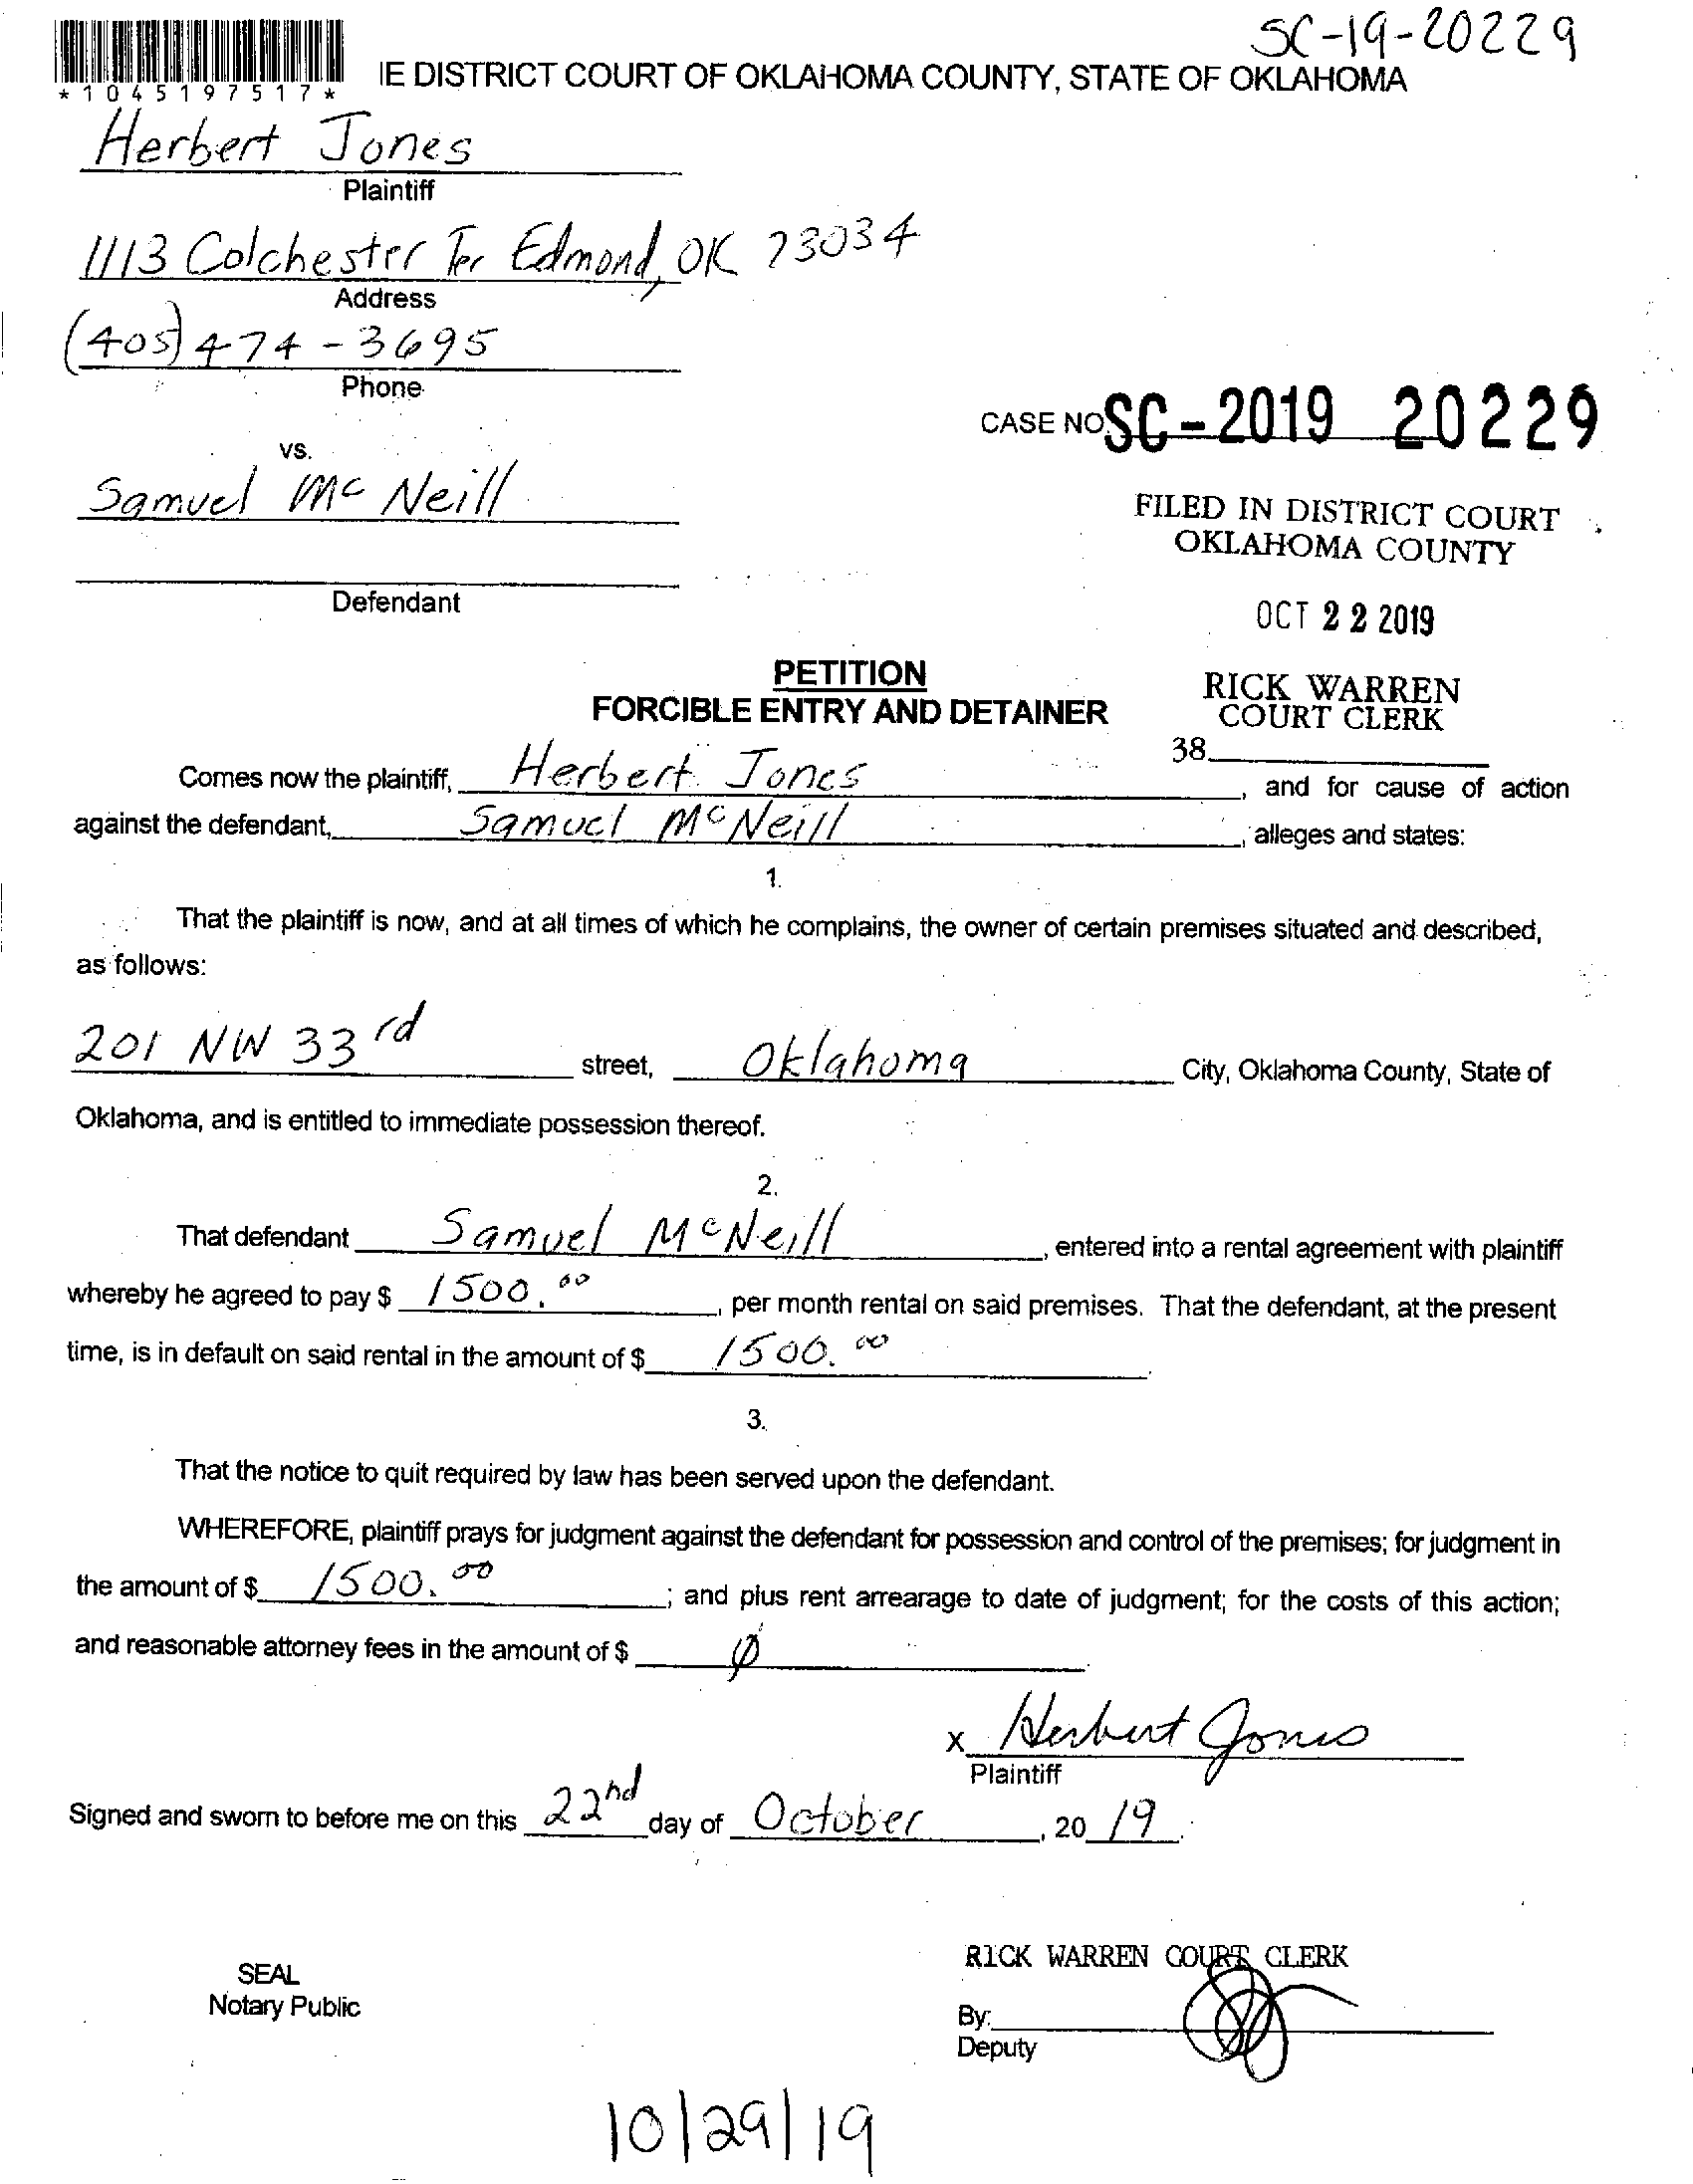 SC-19-20229
*1045197517*
IE DISTRICT COURT OF OKLAHOMA COUNTY, STATE OF OKLAHOMA
Herbert Jones
Plaintiff
1113 Colchester Ter Edmond, OK 73034
Address
(405) 474-3695
Phone
CASE NO. SC-2019 20229
vs.
Samuel McNeill
FILED IN DISTRICT COURT
OKLAHOMA COUNTY
Defendant
OCT 22 2019
PETITION
FORCIBLE ENTRY AND DETAINER
RICK WARREN
COURT CLERK
38
Comes now the plaintiff, Herbert Jones, and for cause of action
against the defendant, Samuel McNeill, alleges and states:
1.
That the plaintiff is now, and at all times of which he complains, the owner of certain premises situated and described,
as follows:
201 NW 33rd street, Oklahoma City, Oklahoma County, State of
Oklahoma, and is entitled to immediate possession thereof.
2.
That defendant Samuel McNeill, entered into a rental agreement with plaintiff
whereby he agreed to pay $ 1500.00, per month rental on said premises. That the defendant, at the present
time, is in default on said rental in the amount of $ 1500.00.
3.
That the notice to quit required by law has been served upon the defendant.
WHEREFORE, plaintiff prays for judgment against the defendant for possession and control of the premises; for judgment in
the amount of $ 1500.00; and plus rent arrearage to date of judgment; for the costs of this action;
and reasonable attorney fees in the amount of $ Ø.
x Herbert Jones
Plaintiff
Signed and sworn to before me on this 22nd day of October, 20 19.
RICK WARREN COURT CLERK
SEAL
Notary Public
By:
Deputy
10/29/19